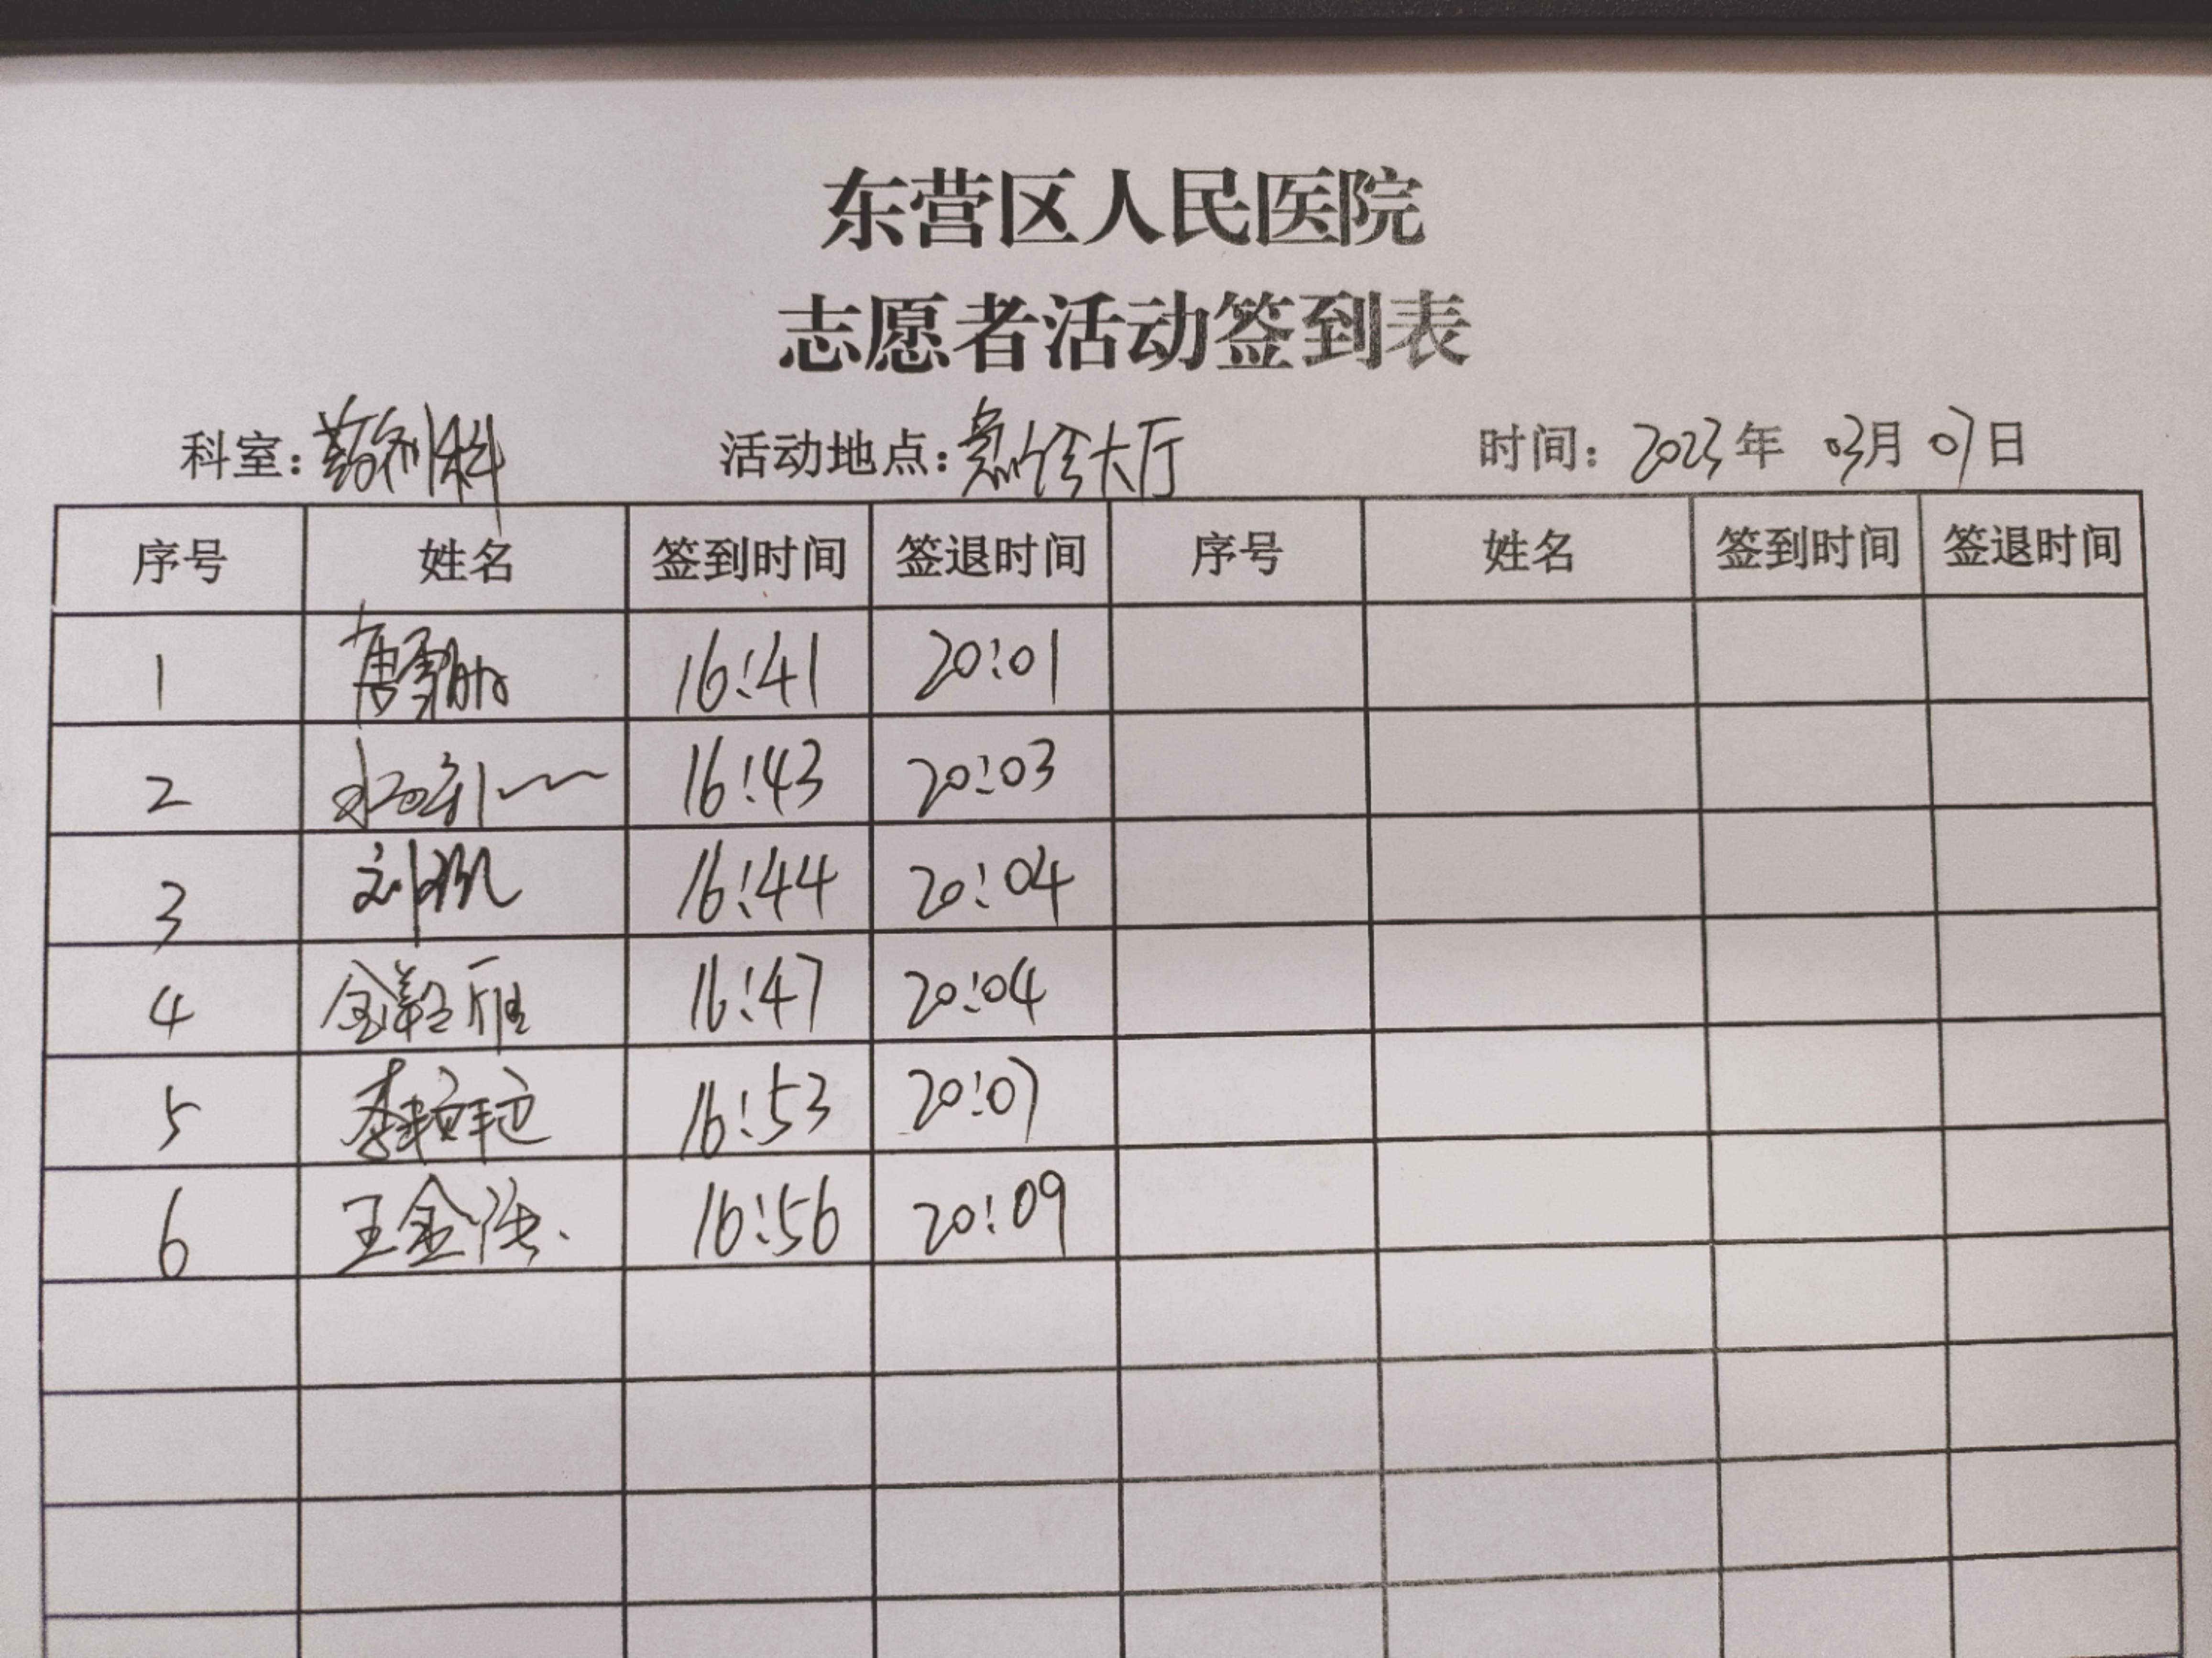 东营区人民医院
志愿者活动签到表
科室：药剂科 活动地点：急诊大厅 时间：2023年 03月 07日
序号 姓名 签到时间 签退时间 序号 姓名 签到时间 签退时间
1 16:41 20:01
2 16:43 20:03
3 刘 16:44 20:04
4 金 雁 16:47 20:04
5 李 16:53 20:07
6 王金 16:56 20:09